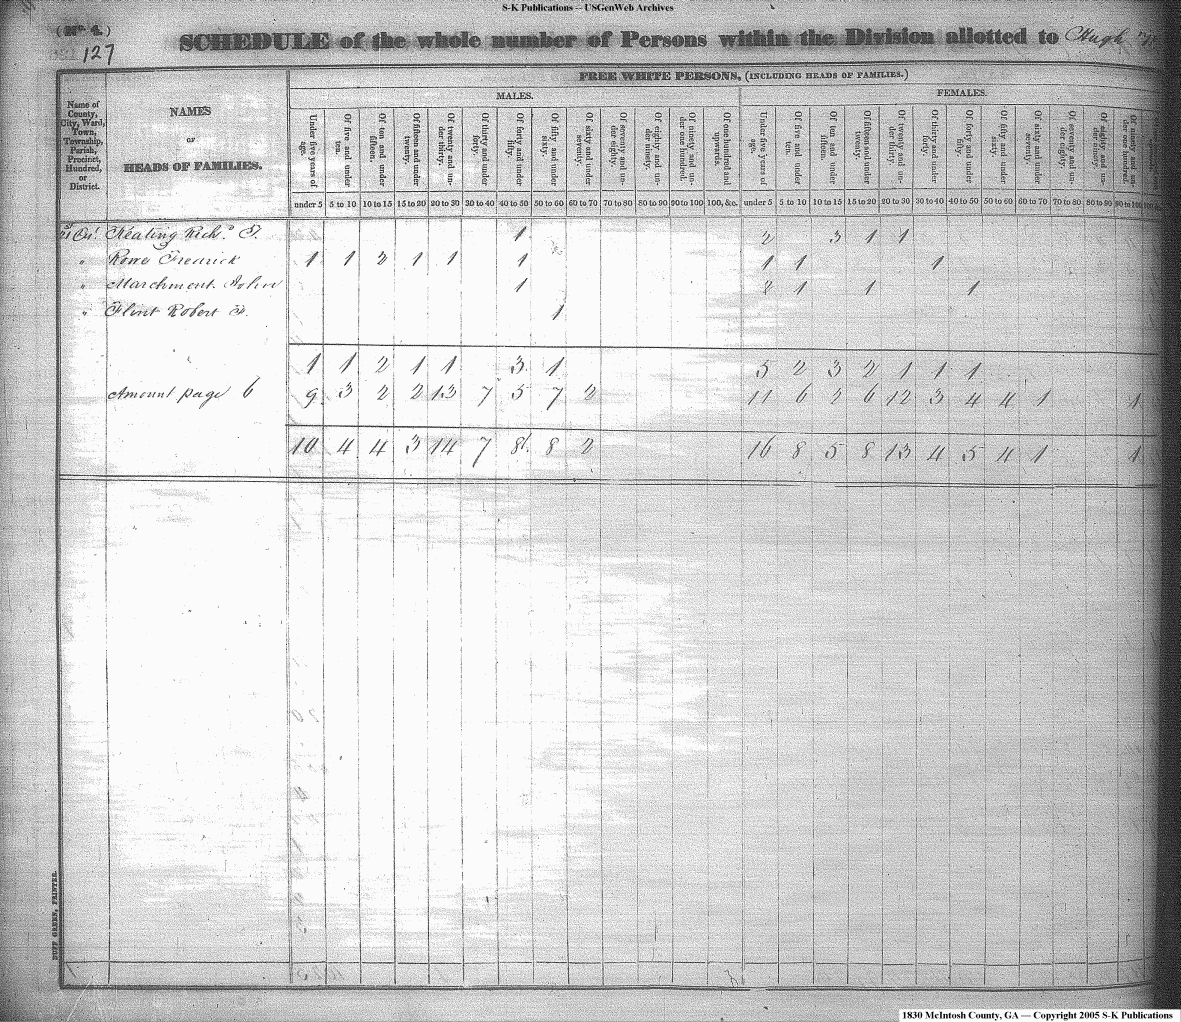 S-K Publications -- USGenWeb Archives
(No. 4.)
127
SCHEDULE of the whole number of Persons within the Division allotted to Hugh
FREE WHITE PERSONS, (INCLUDING HEADS OF FAMILIES.)
MALES. FEMALES.
Name of County, City, Ward, Town, Township, Parish, Precinct, Hundred, or District.
NAMES
OF
HEADS OF FAMILIES.
Under five years of age. Of five and under ten. Of ten and under fifteen. Of fifteen and under twenty. Of twenty and under thirty. Of thirty and under forty. Of forty and under fifty. Of fifty and under sixty. Of sixty and under seventy. Of seventy and under eighty. Of eighty and under ninety. Of ninety and under one hundred. Of one hundred and upwards. Under five years of age. Of five and under ten. Of ten and under fifteen. Of fifteen and under twenty. Of twenty and under thirty. Of thirty and under forty. Of forty and under fifty. Of fifty and under sixty. Of sixty and under seventy. Of seventy and under eighty. Of eighty and under ninety.
under 5 5 to 10 10 to 15 15 to 20 20 to 30 30 to 40 40 to 50 50 to 60 60 to 70 70 to 80 80 to 90 90 to 100 100, &c. under 5 5 to 10 10 to 15 15 to 20 20 to 30 30 to 40 40 to 50 50 to 60 60 to 70 70 to 80 80 to 90 90 to 100
Keating Richd. T. 1 2 3 1 1
" Rowe Fredrick 1 1 2 1 1 1 1 1 1
" Marchment John 1 2 1 1 1
" Flint Robert F. 1
1 1 2 1 1 3 1 5 2 3 2 1 1 1
Amount page 6 9 3 2 2 13 7 5 7 2 11 6 2 6 12 3 4 4 1 1
10 4 4 3 14 7 8 8 2 16 8 5 8 13 4 5 4 1 1
DUFF GREEN, PRINTER.
1830 McIntosh County, GA — Copyright 2005 S-K Publications